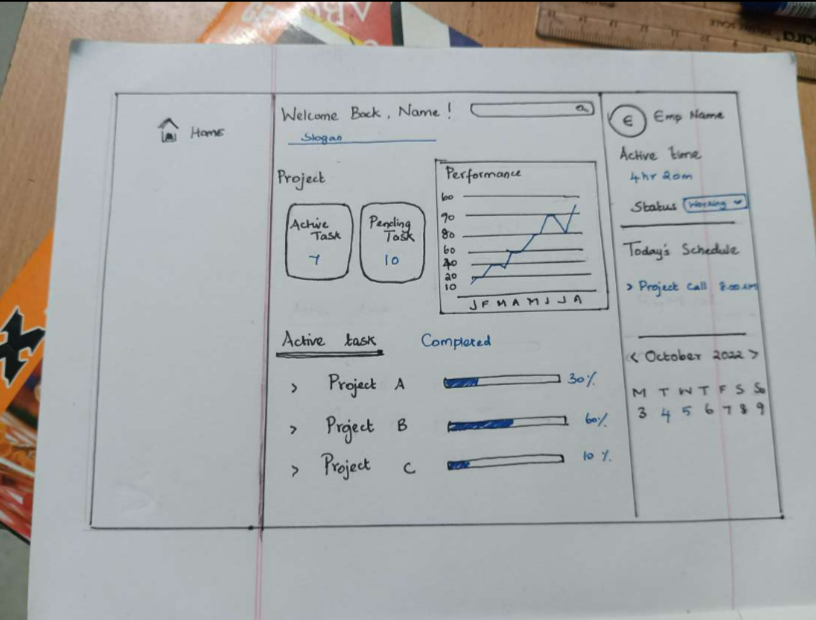 Home
Welcome Back, Name!
Slogan
Project
Active Task
7
Pending Task
10
Performance
60
90
80
60
40
20
10
J F M A M J J A
Active task Completed
> Project A 30%
> Project B 60%
> Project C 10%
E Emp Name
Active time
4hr 20m
Status Working
Today's Schedule
> Project Call 8:00 AM
< October 2022 >
M T W T F S Su
3 4 5 6 7 8 9